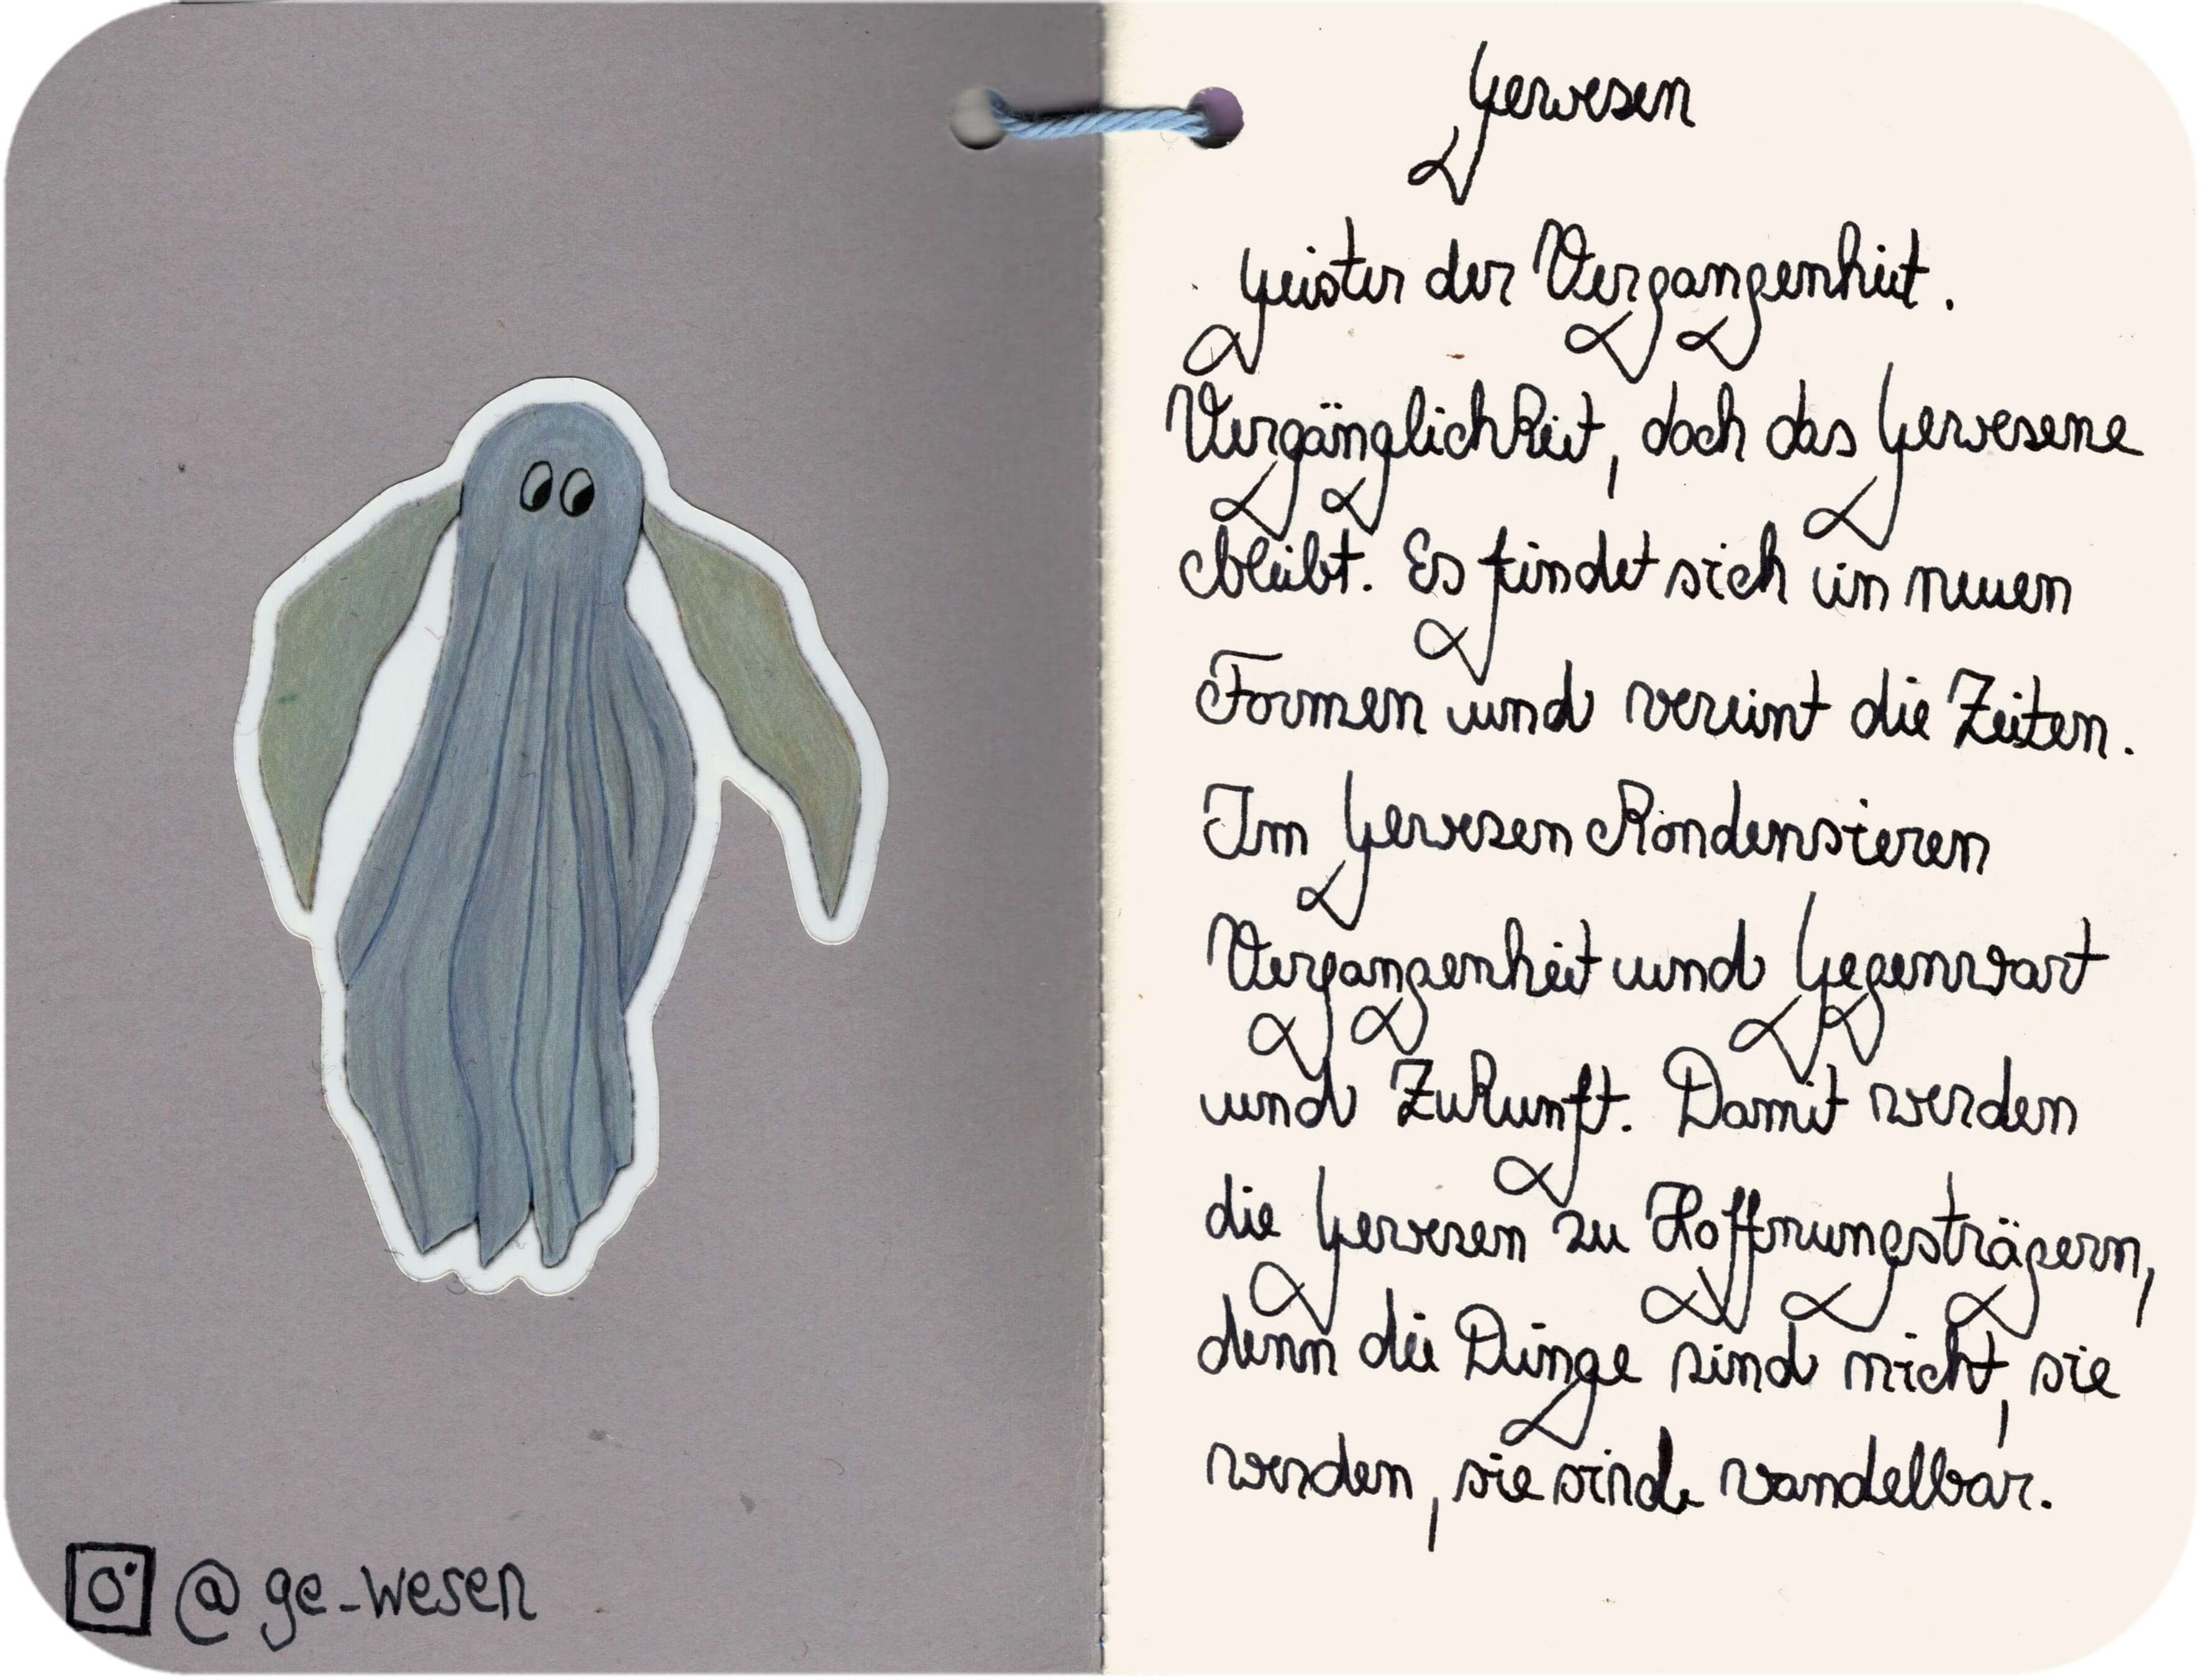 @ge_wesen
Gewesen
Geister der Vergangenheit.
Vergänglichkeit, doch das Gewesene
bleibt. Es findet sich in neuen
Formen und vereint die Zeiten.
Im Gewesen kondensieren
Vergangenheit und Gegenwart
und Zukunft. Damit werden
die Gewesen zu Hoffnungsträgern,
denn die Dinge sind nicht, sie
werden, sie sind wandelbar.